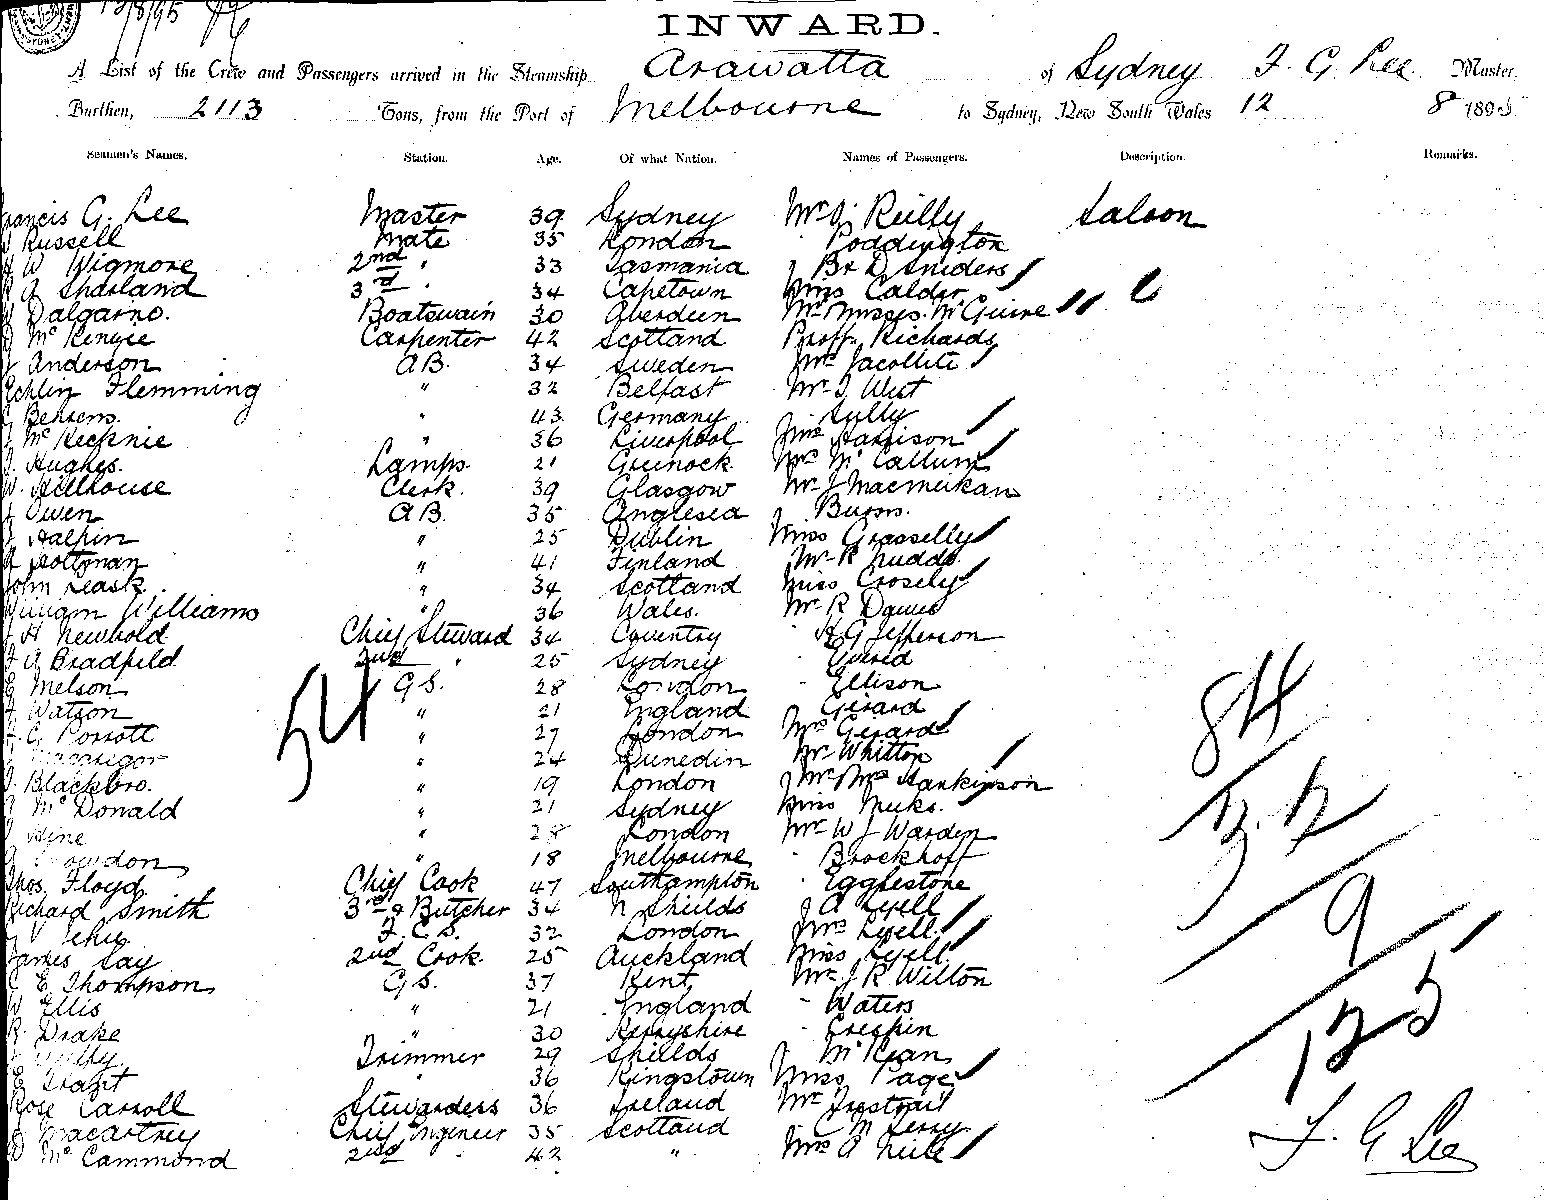 12/8/95
INWARD.
A List of the Crew and Passengers arrived in the Steamship Arawatta of Sydney F. G. Lee Master
Burthen, 2113 Tons, from the Port of Melbourne to Sydney, New South Wales 12 8 1895
Seamen's Names. Station. Age. Of what Nation. Names of Passengers. Description. Remarks.
Francis G. Lee Master 39 Sydney Mr J. Reilly Saloon
Russell Mate 35 London " Poddington
W Wigmore 2nd " 33 Tasmania " Dr D Sniders
Sharland 3rd " 34 Capetown Miss Calder
Dalgarno. Boatswain 30 Aberdeen Mr Misses McGuire
McKenzie Carpenter 42 Scotland Proff. Richards
Anderson A.B. 34 Sweden Mrs Jacollite
Echlin Flemming " 32 Belfast Mr J West
Behrens. " 43 Germany " Lilly
McKechnie " 36 Liverpool Mrs Harrison
J. Hughes. Lamps. 21 Greenock Mrs McCallum
W. Hillhouse Clerk. 39 Glasgow Mr J Macmeikan
Owen A.B. 35 Anglesea " Burns.
Halpin " 25 Dublin Miss Grasselly
Holtman " 41 Finland Mr R Rudds
John Leask " 34 Scotland Miss Crosely
William Williams " 36 Wales. Mr R Davies
H Newbold Chief Steward 34 Coventry " H G Jefferson
A Bradfield 2nd " 25 Sydney " Everid
Melson G S. 28 London " Ellison
Watson " 21 England " Girard
G Porrott " 27 London Mrs Gerard
Macgregor " 24 Dunedin Mr Whitton
Blackbro. " 19 London Mr Mrs Hankinson
McDonald " 21 Sydney Miss Meeks.
Hine " 28 London Mr W J Warden
" 18 Melbourne " Brockhoff
Thos. Floyd Chief Cook 47 Southampton " Egglestone
Richard Smith 3rd & Butcher 34 N Shields " J A Lyell
F.C.S. 32 London Mrs Lyell
James Lay 2nd Cook. 25 Auckland Miss Lyell
E Thompson G S. 37 Kent Mr J R Wilton
W Ellis " 21 England " Waters
R. Drake " 30 Derbyshire " Crespin
Trimmer 29 Shields " McKean
Grant " 36 Kingstown Miss Page
Rose Carroll Stewardess 36 Ireland Mr Trestrail
Macartney Chief Engineer 35 Scotland " C M Terry
McCammond 2nd " 42 " Mrs A Neile
54
84
32
9
125
F. G Lee